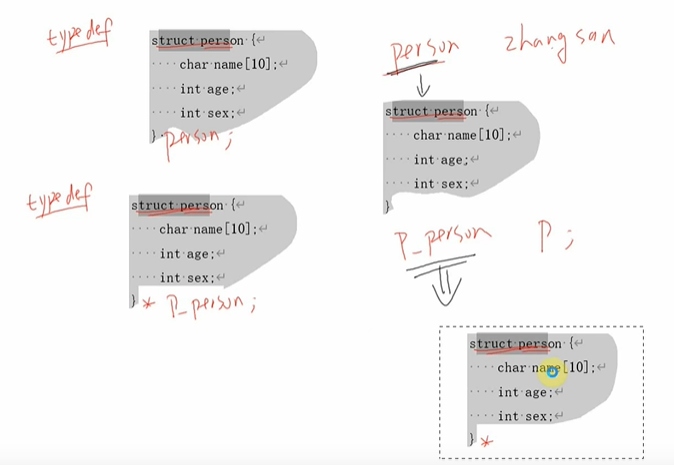 typedef
struct person {
char name[10];
int age;
int sex;
} person;
typedef
struct person {
char name[10];
int age;
int sex;
} * P_person;
person zhangsan
struct person {
char name[10];
int age;
int sex;
}
P_person P;
struct person {
char name[10];
int age;
int sex;
} *